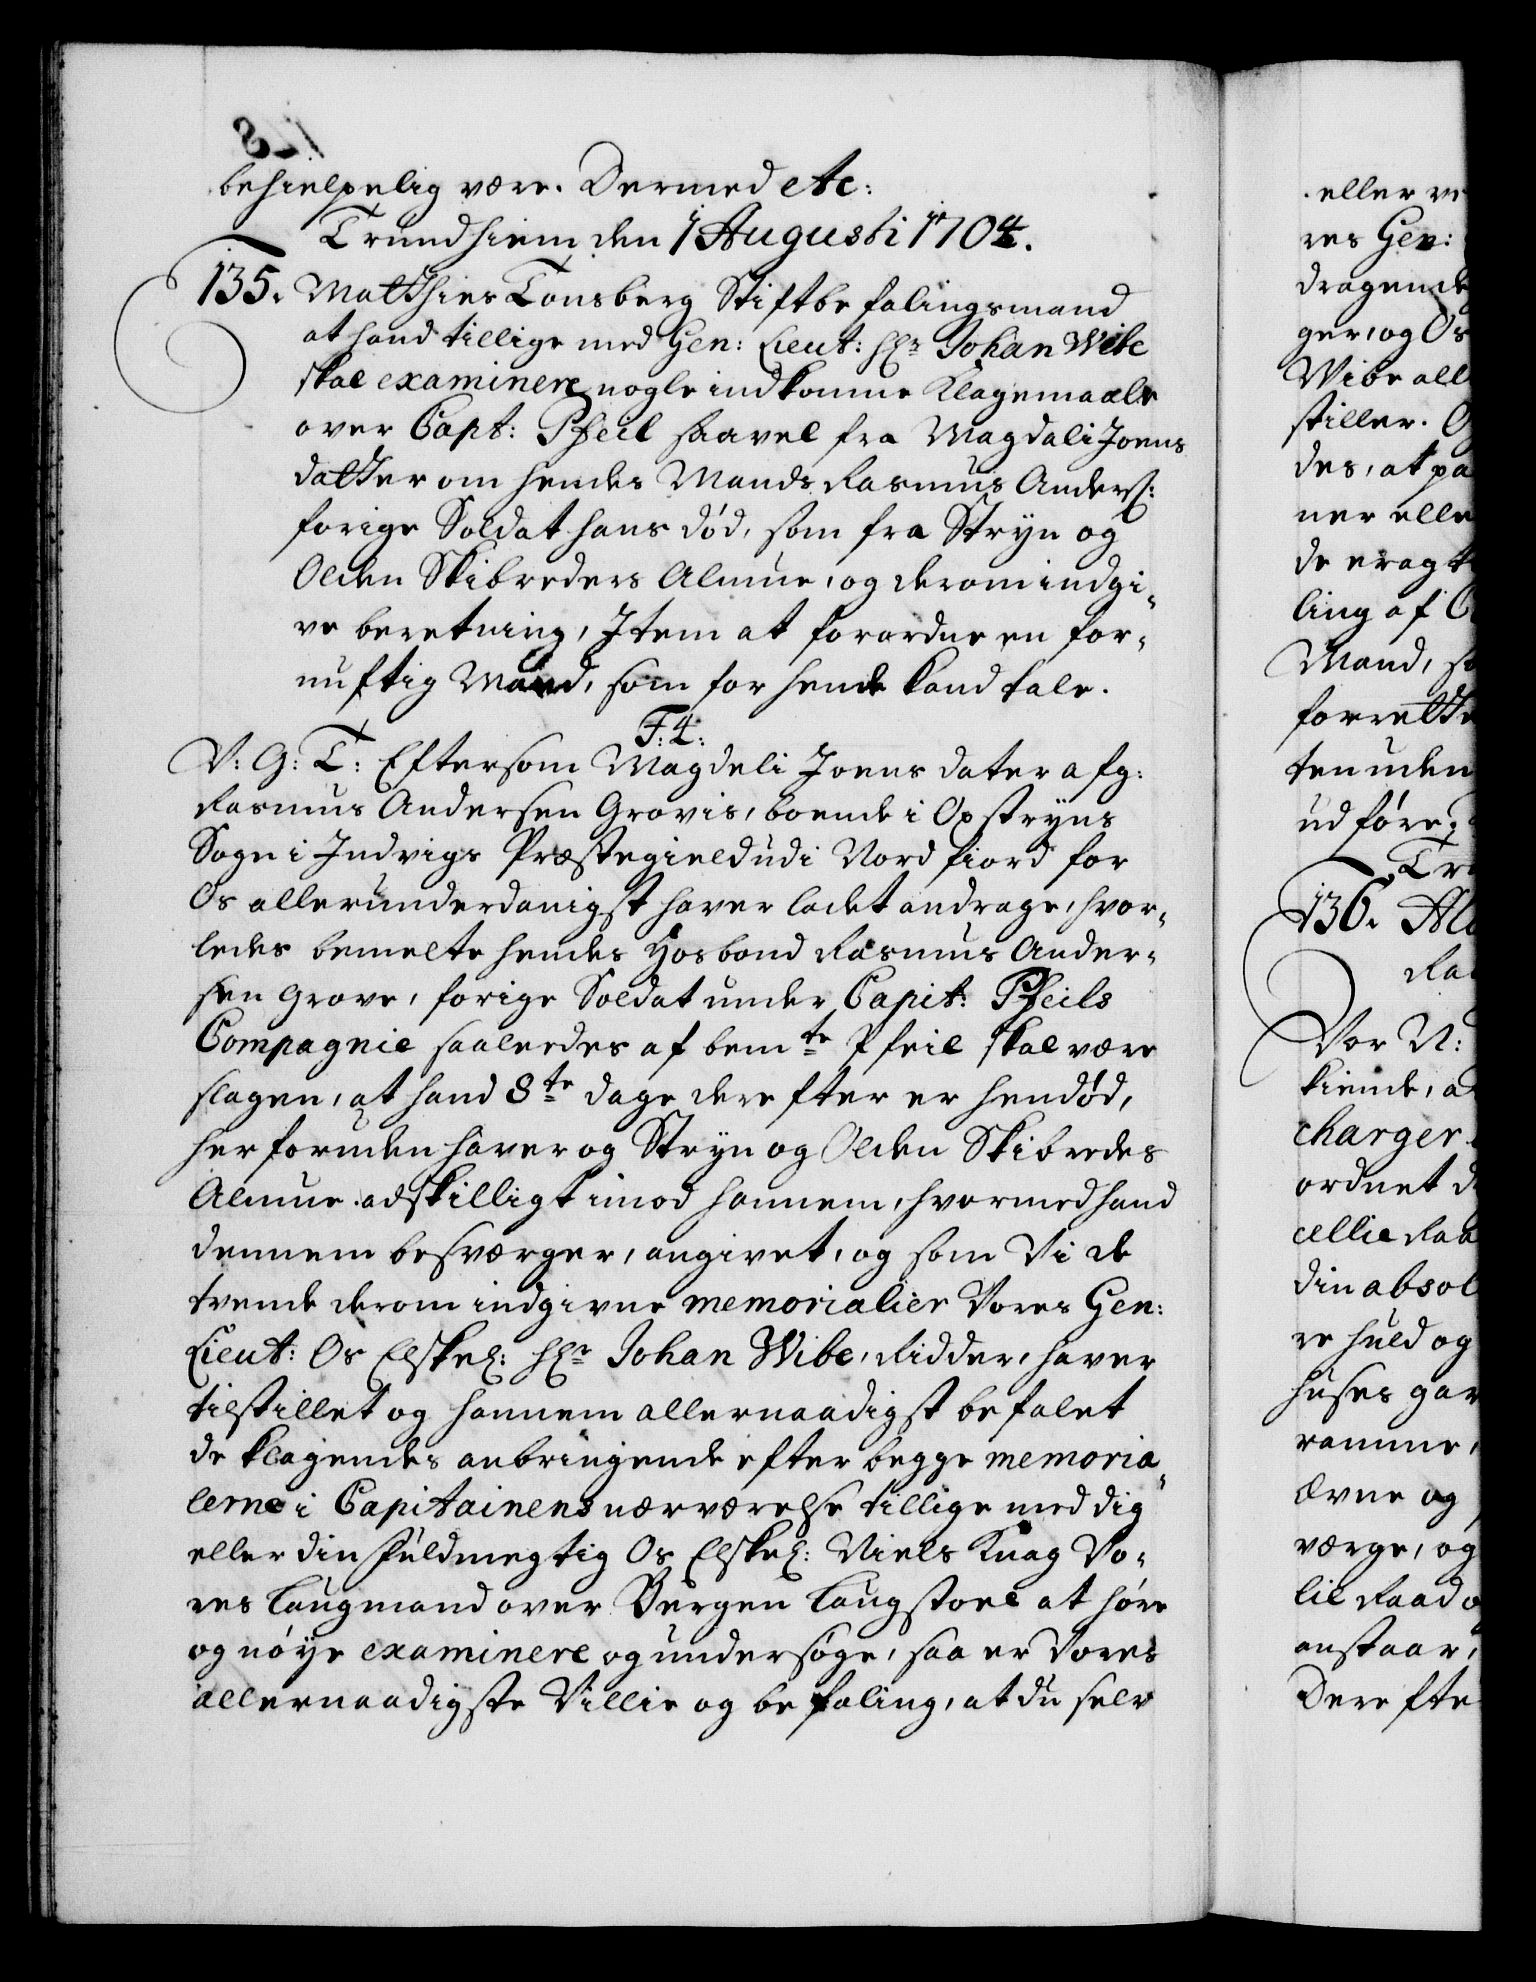 behielpelig være. Dermed etc:
Trundhiem den 1 Augusti 1704.
135. Matthies Tonsberg Stiftbefalingsmand
at hand tillige med Gen: Lieut: Hr Johan Wibe
skal examinere nogle indkomne Klagemaale
over Capt: Pfeil saavel fra Magdali Joens
datter om hendes Mands Rasmus Anders:
forige Soldat hans død, som fra Stryn og
Olden Skibreders Almue, og derom indgi-
ve beretning, Item at forordne en for-
nuftig Mand, som for hende kand tale.
F: 4:
V: G: T: Eftersom Magdeli Joens dater afg:
Rasmus Andersen Grovis, boende i Opstryns
Sogn i Indvigs Præstegield udi Nordfiord for
Os allerunderdanigst haver ladet andrage, hvor-
ledes bemelte hendes Hosbond Rasmus Ander-
sen Grove, forige Soldat under Capit: Pfeils
Compagnie saaledes af bemte Pfeil skal være
slagen, at hand 8te dage derefter er hendød,
herforuden haver og Stryn og Olden Skibredes
Almue adskilligt imod hannem, hvormed hand
dennem besværger, angivet, og som Vi de
tvende derom indgivne memorialier Vores Gen:
Lieut: Os Elskel: Hr Johan Wibe, Ridder, haver
tilstillet og hannem allernaadigst befalet
de klagendes anbringende efter begge memoria-
lerne i Capitainens nærværelse tillige med dig
eller din fuldmegtig Os Elskel: Niels Knag Vo-
res Laugmand over Bergen Laugstoel at høre
og nøye examinere og undersøge, saa er Vores
allernaadigste Villie og befaling, at du selv
eller ve
res Gen:
dragende
ger, og Os
Wibe all
stiller.
des, at pa
ner elle
de eragt
ling af
Mand, so
forrette
ten uden
udføre.
Tr
136.
Vor N:
kiende, a
charger
ordnet d
cellie Raa
din absol
re huld og
huses gav
ramme,
ævne og
værge, og
lie Raad o
anstaar,
Derefte